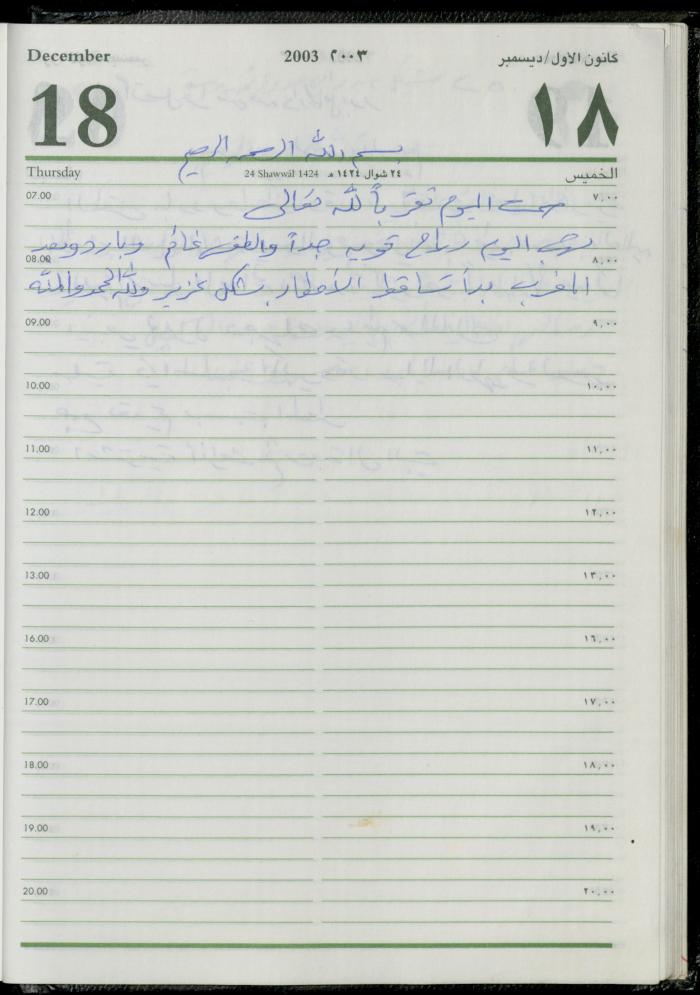 December 2003 ٢٠٠٣ كانون الاول/ديسمبر
18 ١٨
بسم الله الرحمن الرحيم
Thursday 24 Shawwál 1424 ٢٤ شوال ١٤٢٤ هـ الخميس
07.00 ٧,٠٠
صمت اليوم تقرباً لله تعالى
تهب اليوم رياح قوية جداً والطقس غائم وبارد وبعد
08.00 ٨,٠٠
المغرب بدأ تساقط الأمطار بشكل غزير ولله الحمد والمنه
09.00 ٩,٠٠
10.00 ١٠,٠٠
11.00 ١١,٠٠
12.00 ١٢,٠٠
13.00 ١٣,٠٠
16.00 ١٦,٠٠
17.00 ١٧,٠٠
18.00 ١٨,٠٠
19.00 ١٩,٠٠
20.00 ٢٠,٠٠